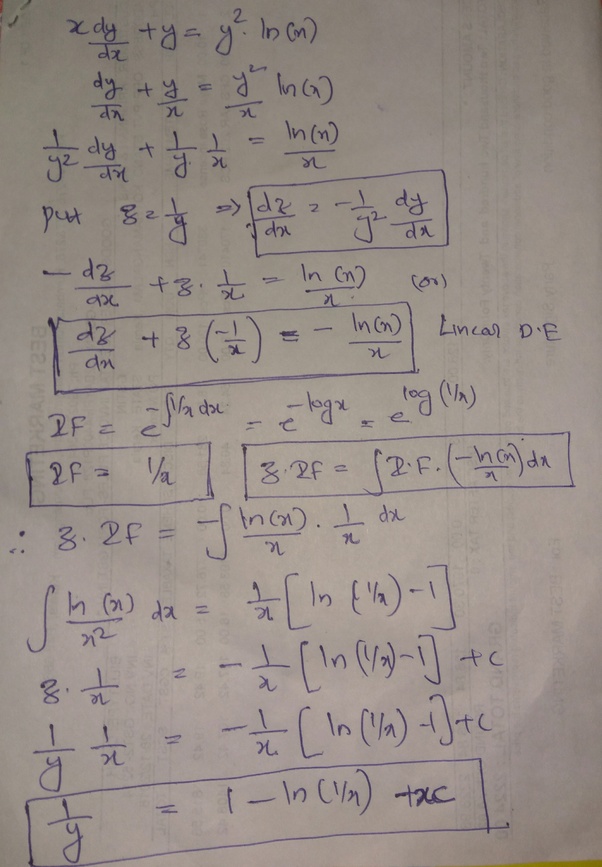 x dy/dx + y = y². ln(x)
dy/dx + y/x = y²/x ln(x)
1/y² dy/dx + 1/y . 1/x = ln(x)/x
put z = 1/y ⇒ dz/dx = -1/y² dy/dx
- dz/dx + z . 1/x = ln(x)/x. (or)
dz/dx + z (-1/x) = - ln(x)/x Linear D.E
IF = e^(-∫1/x dx) = e^(-logx) = e^(log(1/x))
IF = 1/x z.IF = ∫I.F. (-ln(x)/x) dx
∴ z. IF = -∫ ln(x)/x . 1/x dx
∫ ln(x)/x² dx = 1/x [ln(1/x) - 1]
z. 1/x = - 1/x [ln(1/x) - 1] + c
1/y 1/x = - 1/x. [ln(1/x) - 1] + c
1/y = 1 - ln(1/x) + xc